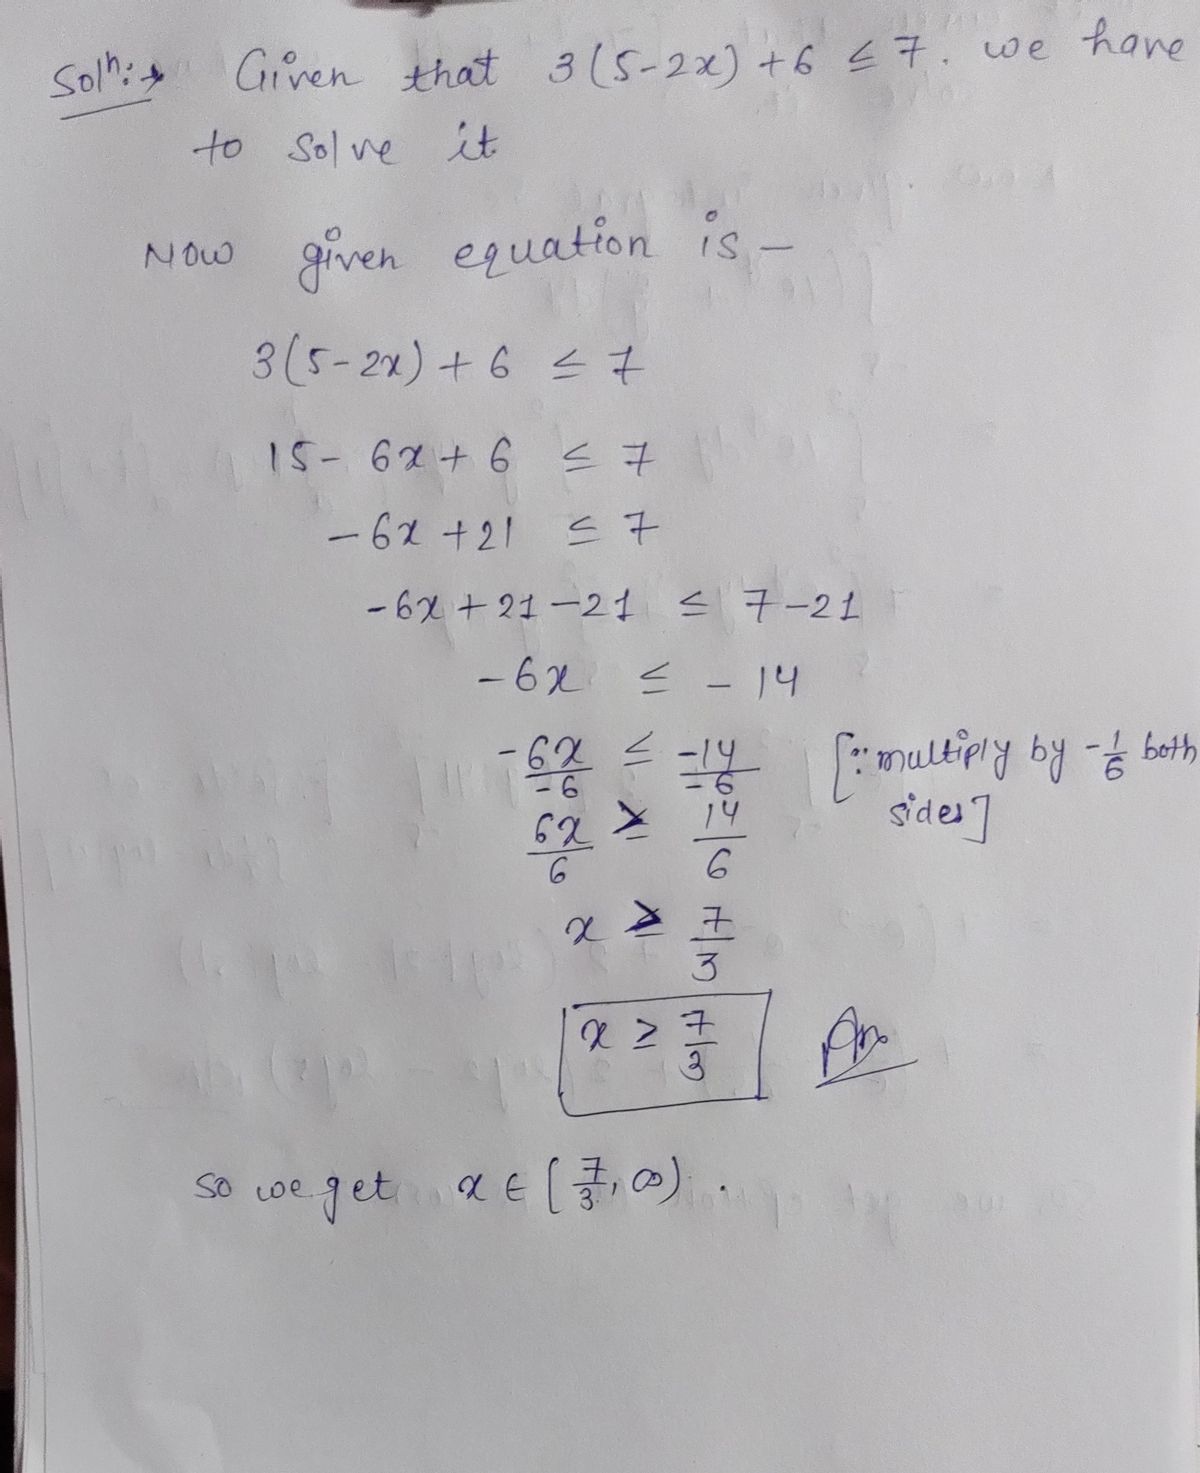 Solⁿ:→ Given that 3(5-2x)+6 ≤ 7. we have
to solve it
Now given equation is -
3(5-2x)+6 ≤ 7
15-6x+6 ≤ 7
-6x+21 ≤ 7
-6x+21-21 ≤ 7-21
-6x ≤ -14
-6x/-6 ≤ -14/-6 [∵ multiply by -1/6 both
sides]
6x/6 ≥ 14/6
x ≥ 7/3
x ≥ 7/3 Ans
so we get x ∈ [7/3, ∞).